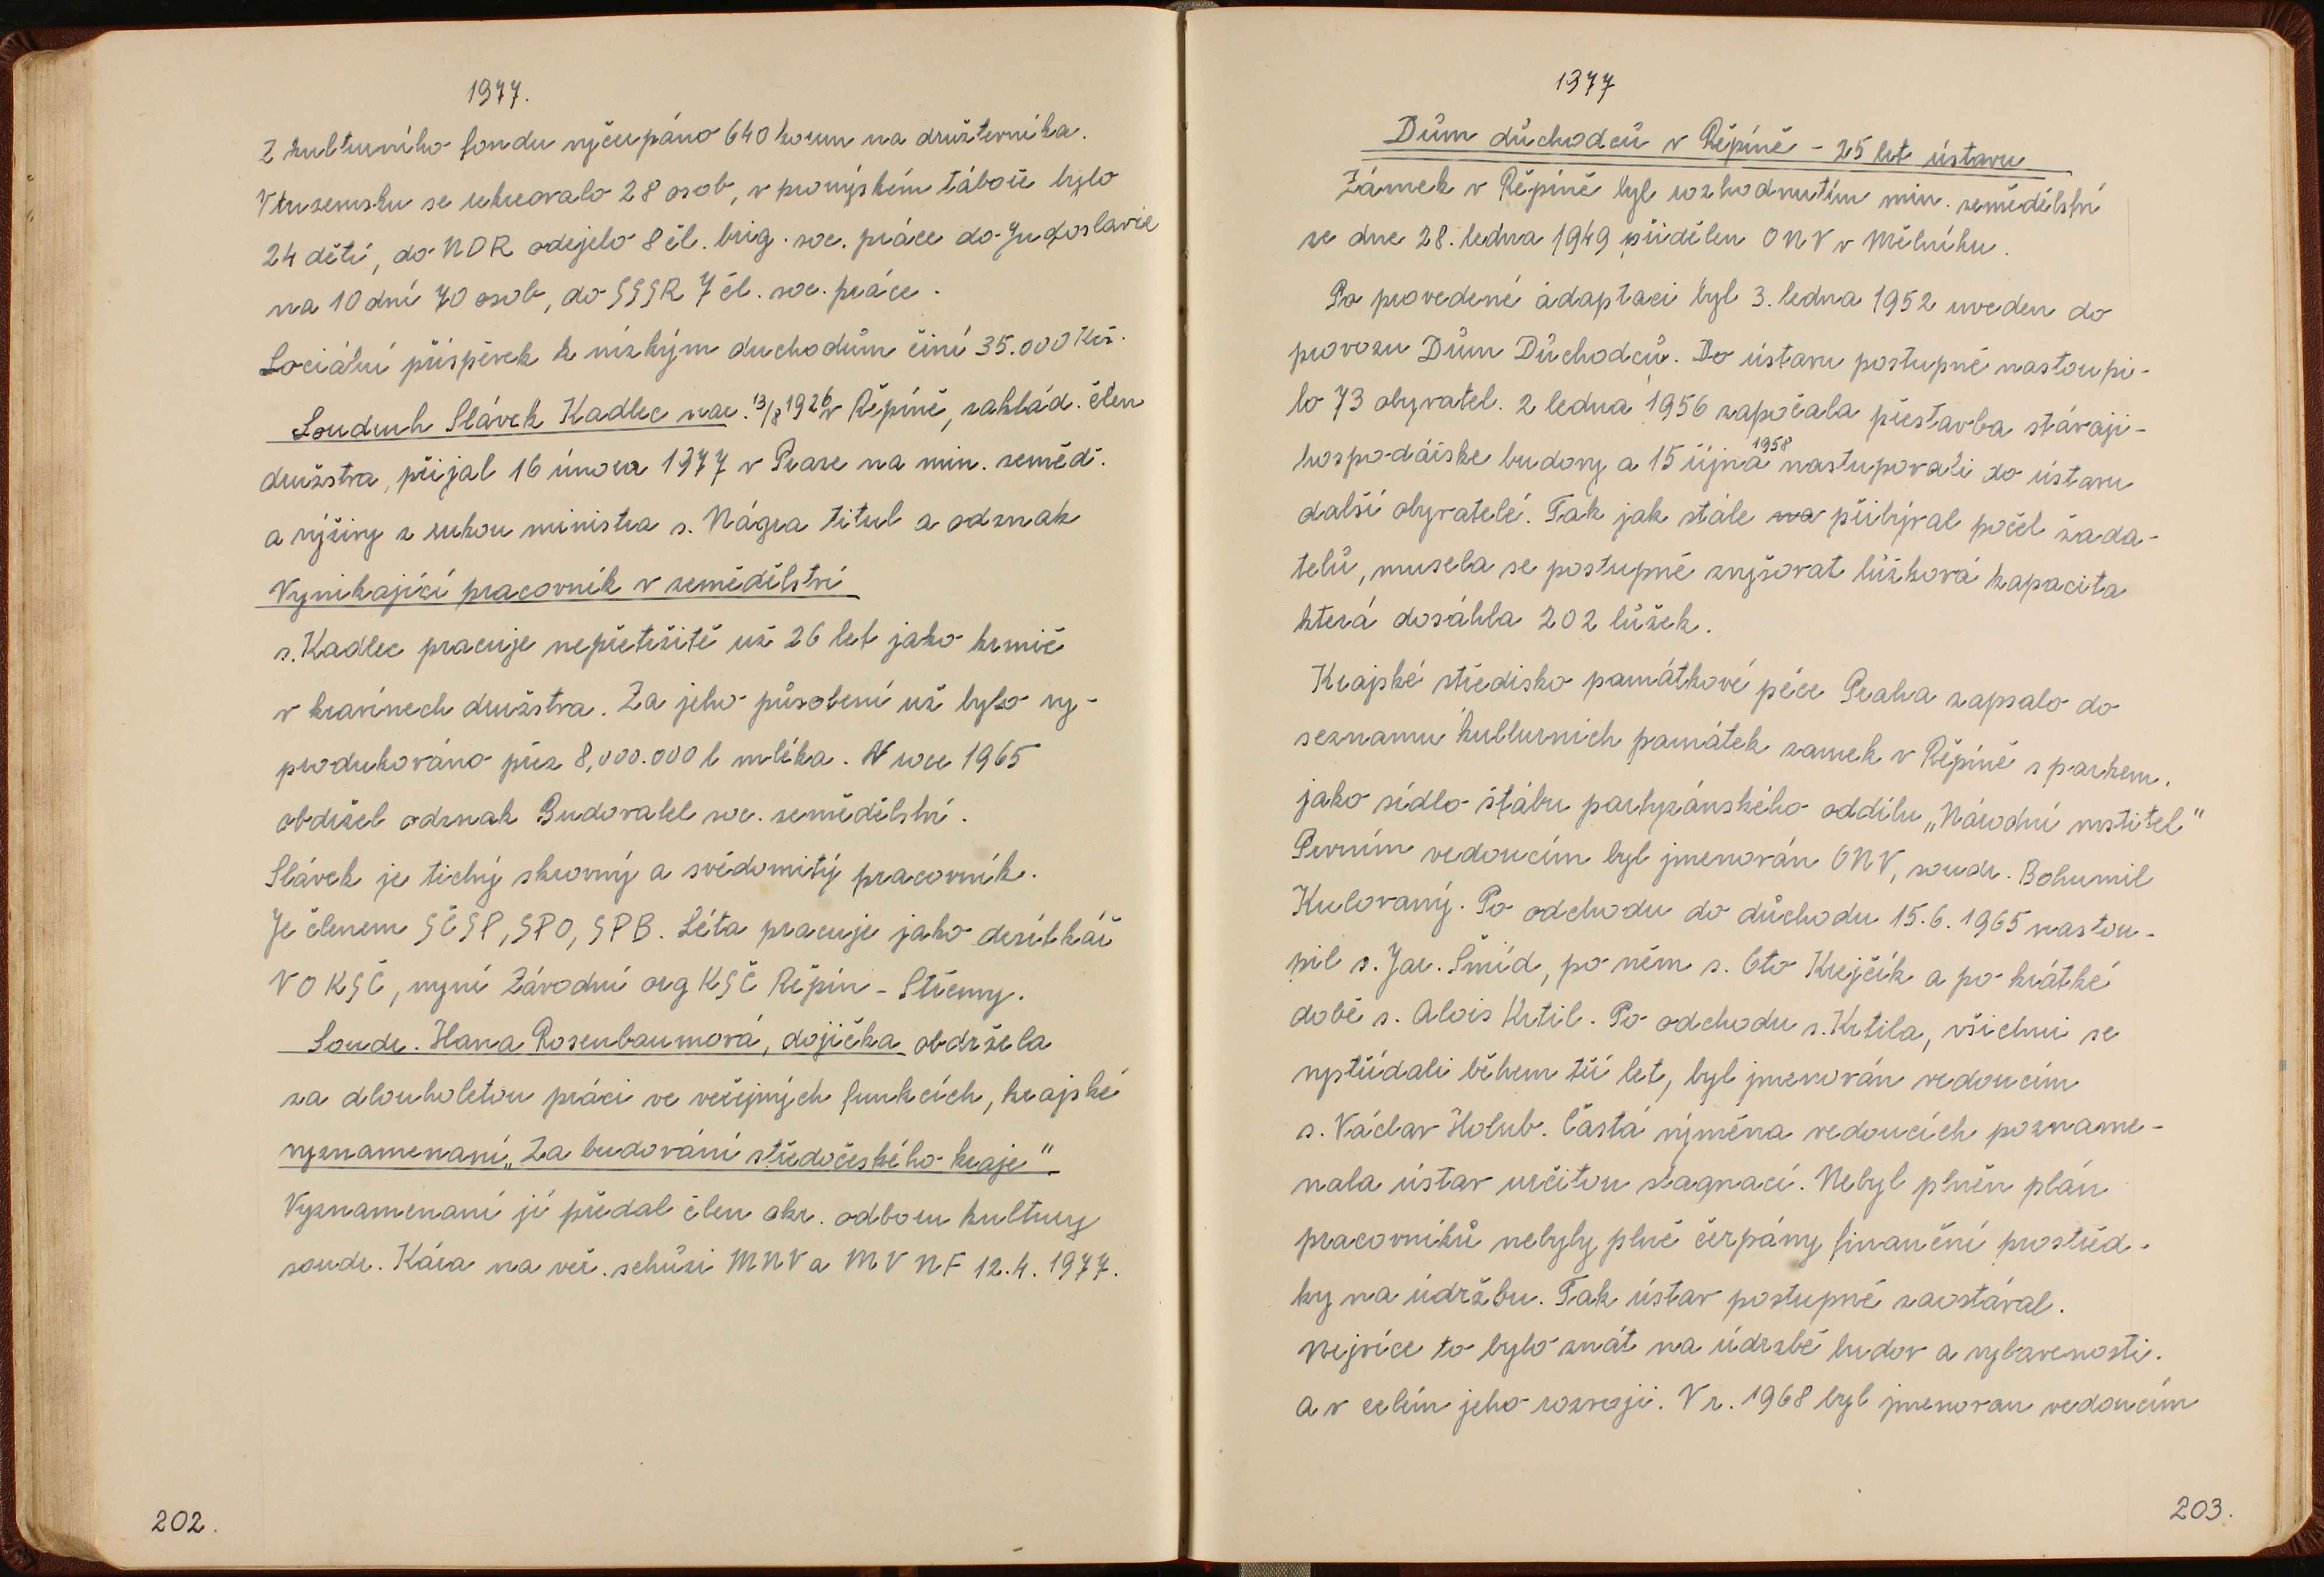 1977.
Z kulturního fondu vyčerpáno 640 korun na družstevníka.
V tuzemsku se rekreovalo 28 osob, v pionýrském táboře bylo
24 dětí, do NDR odejelo 8 čl. brig. soc. práce do Jugoslavie
na 10 dní 70 osob, do SSSR 7 čl. soc. práce.
Sociální příspěvek k nízkým duchodům činí 35.000 Kčs.
Soudruh Slávek Kadlec nar. 13/8 1926 v Řepíně, zahlád. člen
družstva, přijal 16 února 1977 v Praze na min. zeměd.
a výživy z rukou ministra s. Nágra titul a odznak
Vynikající pracovník v zemědělství
s. Kadlec pracuje nepřetržitě už 26 let jako krmič
v kravínech družstva. Za jeho působení už bylo vy-
produkováno přes 8,000.000 l mléka. V roce 1965
obdržel odznak Budovatel soc. zemědělství.
Slávek je tichý skrovný a svědomitý pracovník.
Je členem SČSP, SPO, SPB. Léta pracuje jako desítkář
VO KSČ, nyní Závodní org KSČ Řepín - Střemy.
Soudr. Hana Rosenbaumová, dojička obdržela
za dlouholetou práci ve veřejných funkcích, krajské
vyznamenaní „Za budování středočeského kraje"
Vyznamenaní jí předal člen okr. odboru kultury
soudr. Kára na veř. schůzi MNV a MV NF 12.4. 1977.
202.
1977
Dům důchodců v Řepíně - 25 let ústavu
Zámek v Řepíně byl rozhodnutím min. zemědělství
ze dne 28. ledna 1949 přidělen ONV v Mělníku.
Po provedené adaptaci byl 3. ledna 1952 uveden do
provozu Dům Důchodců. Do ústavu postupně nastoupi-
lo 73 obyvatel. 2 ledna 1956 započala přestavba stávaji-
hospodářske budovy a 15 října 1958 nastupovali do ústavu
další obyvatelé. Tak jak stále na přibýval počet žada-
telů, musela se postupně zvyšovat lůžková kapacita
která dosáhla 202 lůžek.
Krajské středisko památkové péče Praha zapsalo do
seznamu kulturních památek zamek v Řepíně s parkem.
jako sídlo štábu partyzánského oddílu „Národní mstitel"
Prvním vedoucím byl jmenován ONV, soudr. Bohumil
Kulovaný. Po odchodu do důchodu 15.6. 1965 nastou-
pil s. Jar. Šmíd, po něm s. Oto Krejčík a po krátké
době s. Alois Krtil. Po odchodu s. Krtila, všichni se
vystřídali během tří let, byl jmenován vedoucím
s. Václav Holub. Častá výměna vedoucích pozname-
nala ústav určitou stagnací. Nebyl plněn plán
pracovníků nebyly plně čerpány finanční prostřed-
ky na údržbu. Tak ústav postupně zaostával.
Nejvíce to bylo znát na údrzbě budov a vybavenosti.
a v celém jeho rozvoji. V r. 1968 byl jmenovan vedoucím
203.